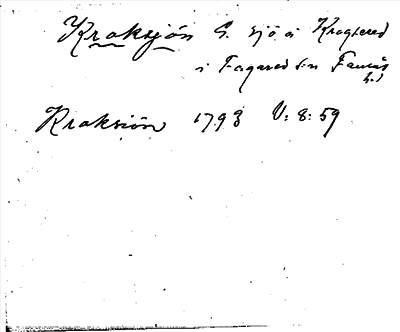 Kroksjön S. sjö i Krogsered
i Fagared s:n Faurås
h.)
Kroksiön 1793 V: 8: 59